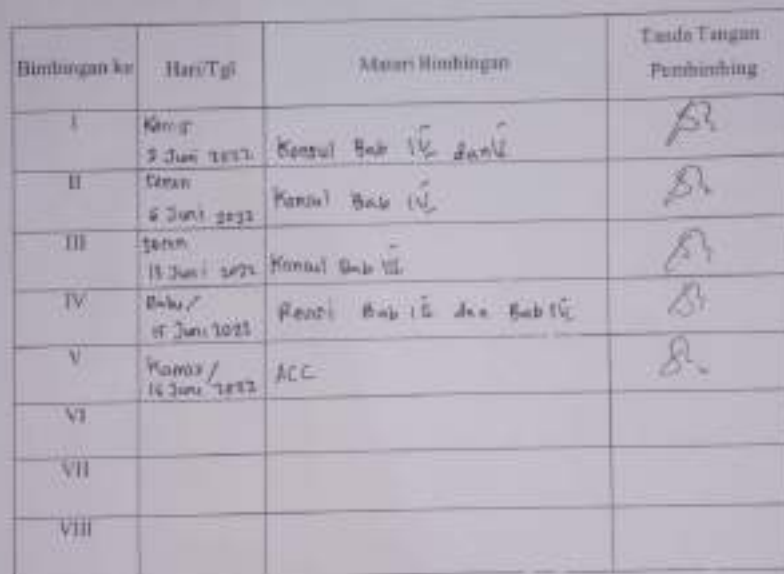 Bimbingan ke Hari/Tgl Materi Bimbingan Tanda Tangan Pembimbing
I Kamis 2 Juni 2022 Konsul Bab dan
II Senin 6 Juni 2022 Konsul Bab
III Senin 13 Juni 2022 Konsul Bab
IV Rabu / 15 Juni 2022 Revisi Bab dan Bab
V Kamis / 16 Juni 2022 ACC
VI
VII
VIII